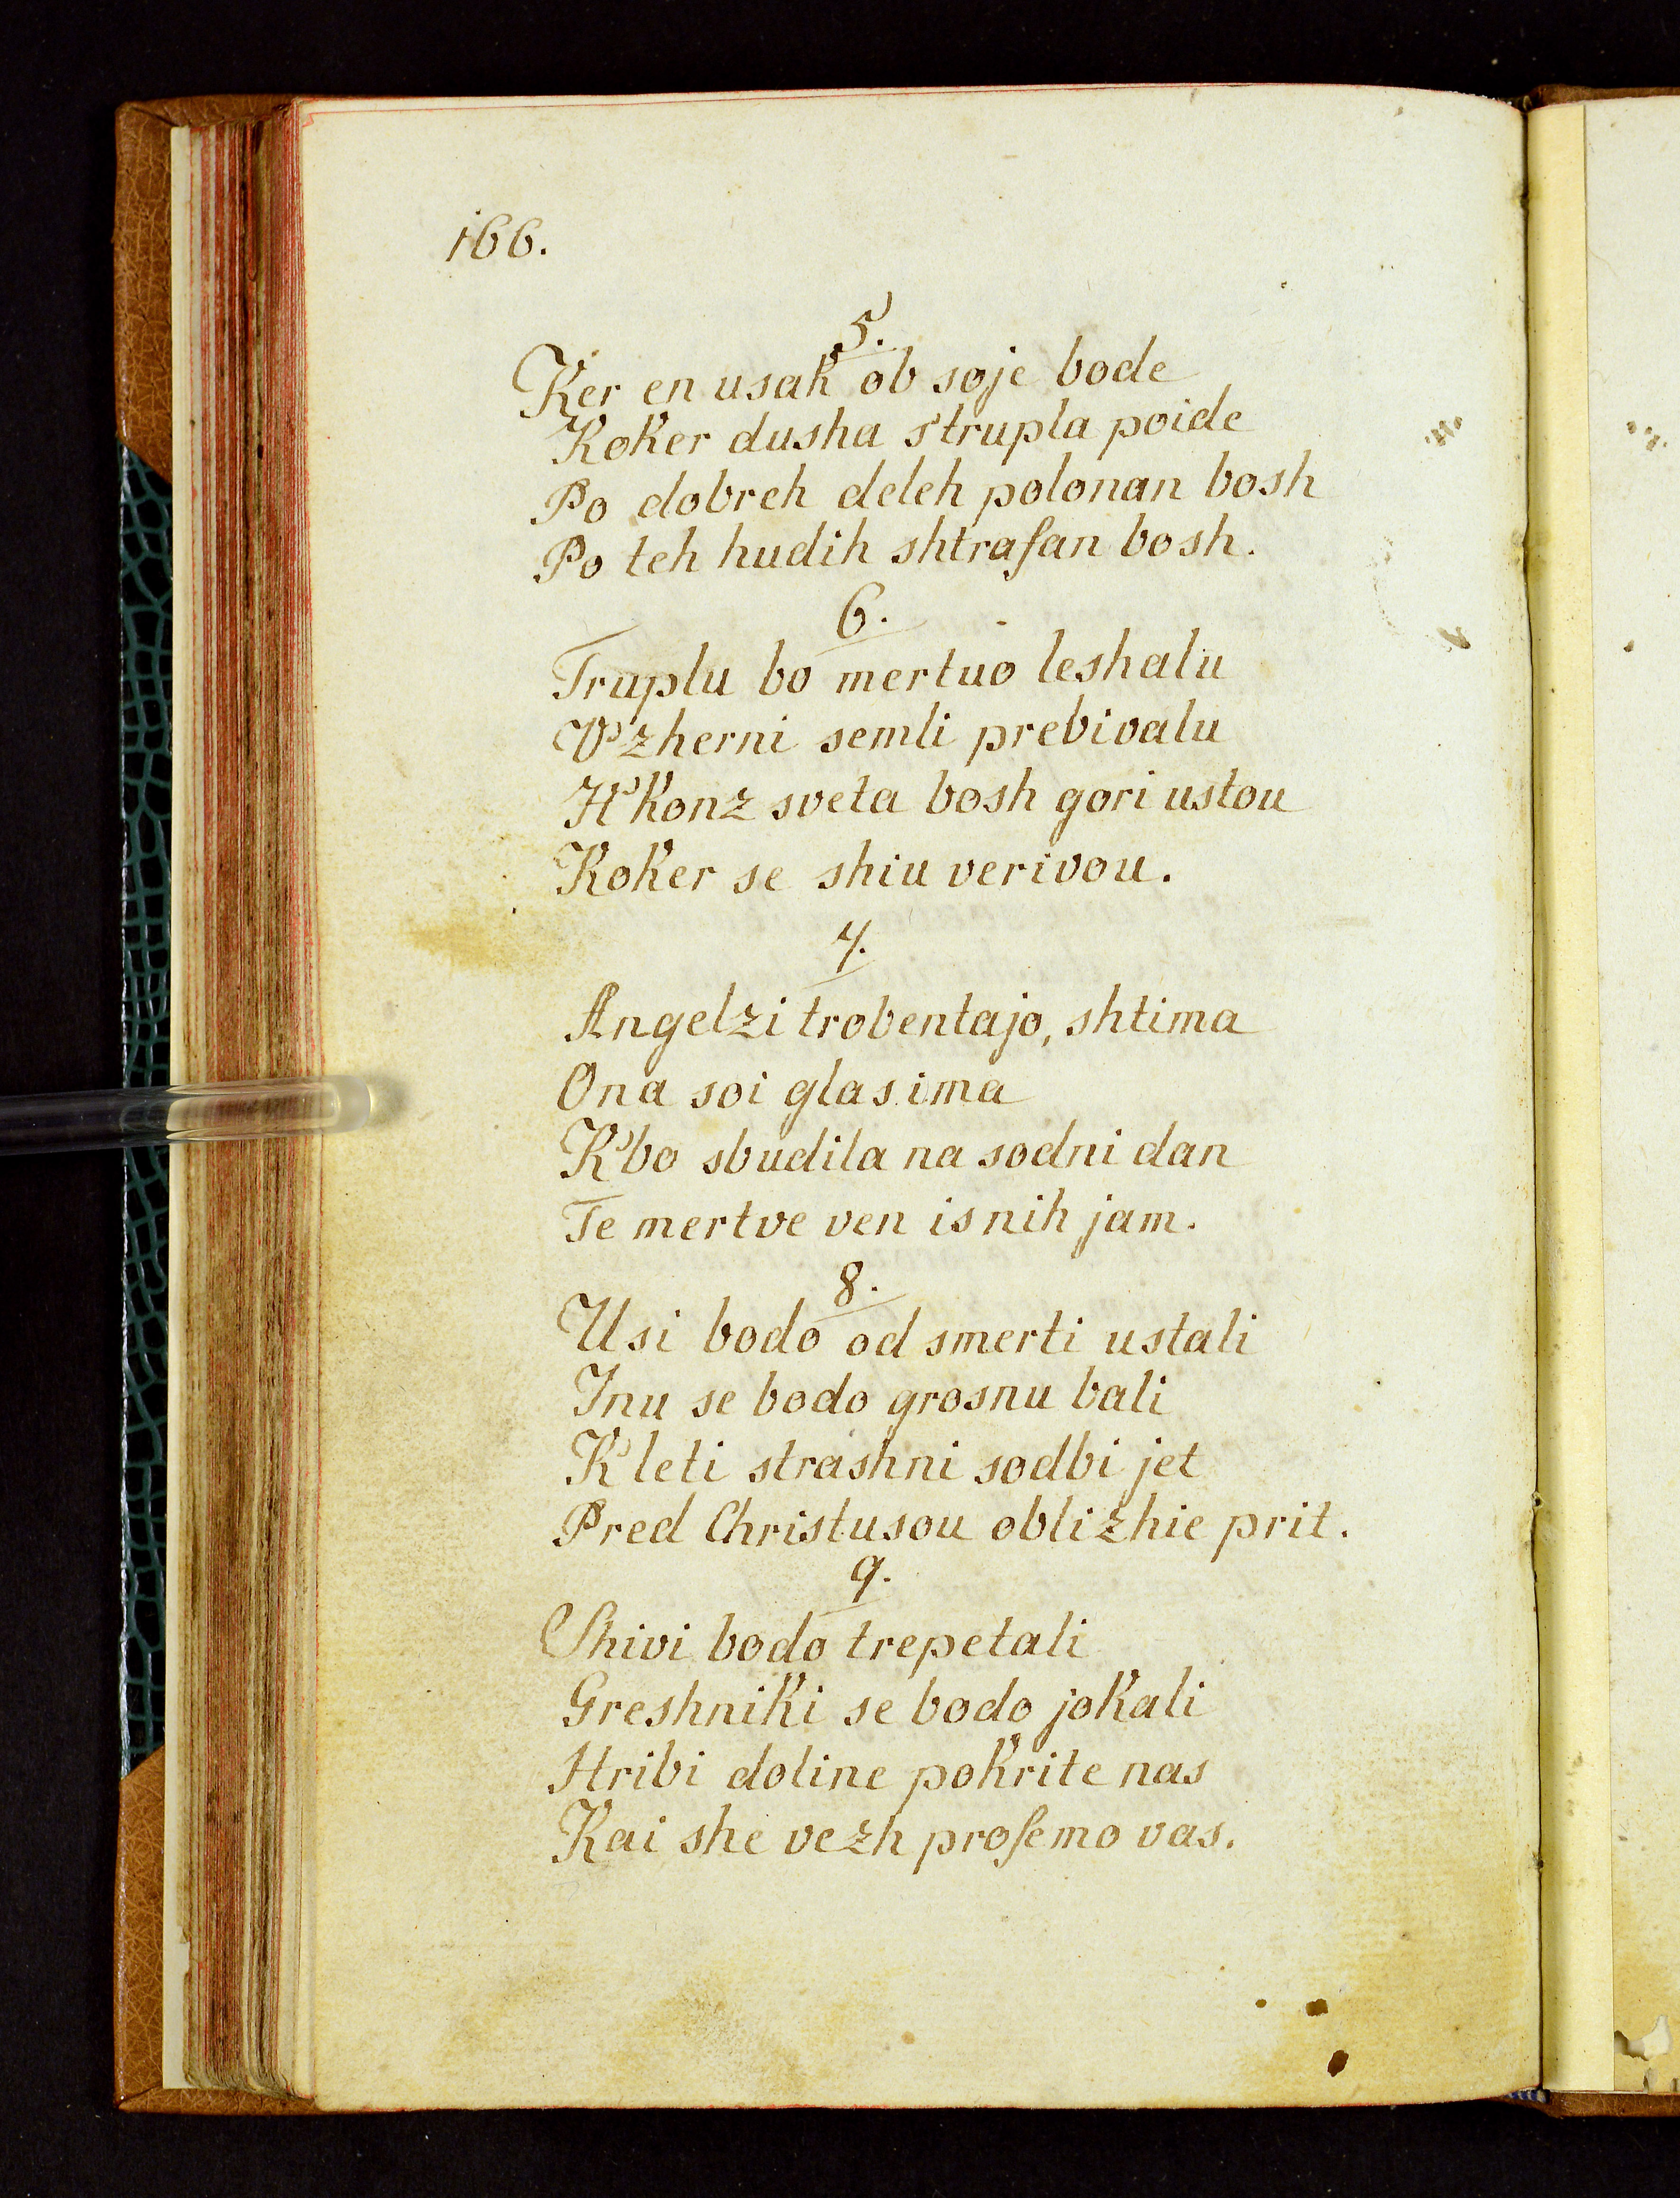 166.
5.
Ker en usak ob soje bode
Koker dusha s'trupla poide
Po dobreh deleh polonan bosh
Po teh hudih shtraſan bosh.
6.
Truplu bo mertuo leshalu
V'zherni semli prebivalu
H'konz sveta bosh gori ustou
Koker se shiu verivou.
7.
Angelzi trobentajo, shtima
Ona soi glas ima
K'bo sbudila na sodni dan
Te mertve ven is nih jam.
8.
Usi bodo od smerti ustali
Inu se bodo grosnu bali
K'leti strashni sodbi jet
Pred Christusou oblizhie prit.
9.
Shivi bodo trepetali
Greshniki se bodo jokali
Hribi doline pokrite nas
Kai she vezh proſemo vas.